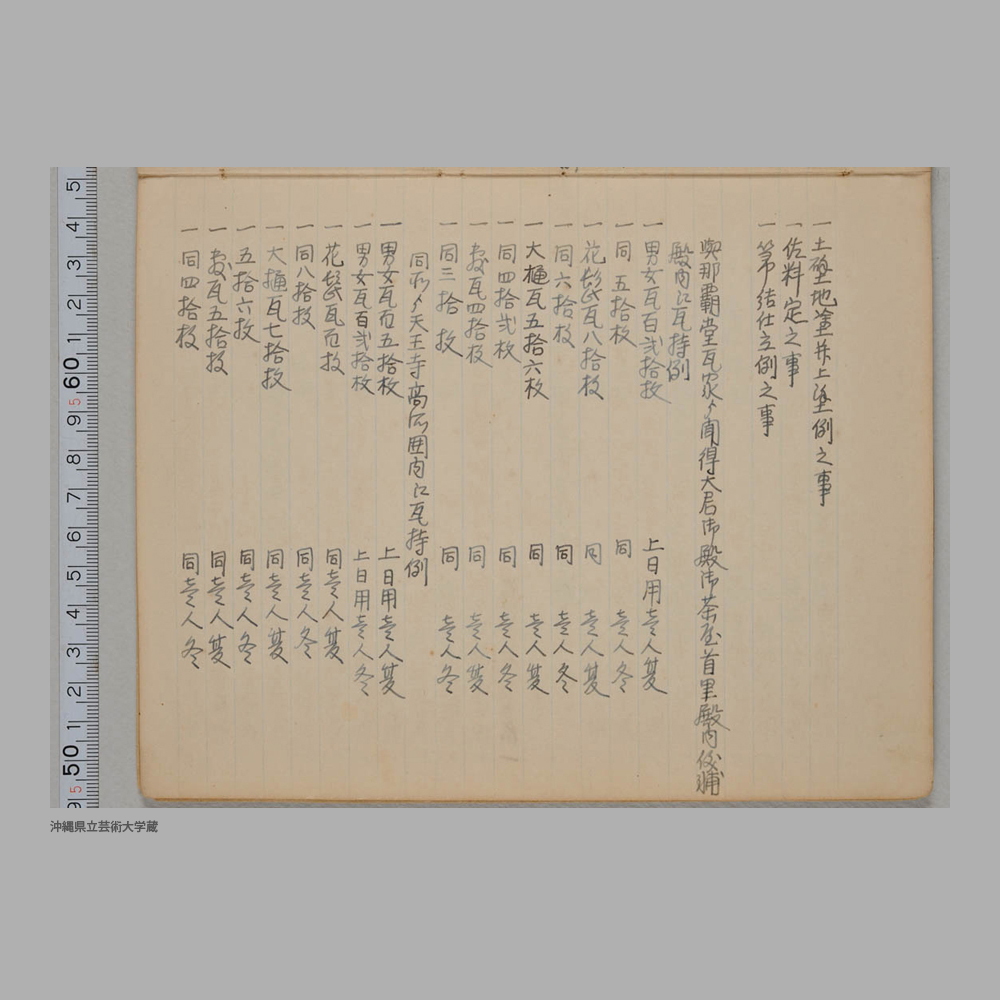 一 土塗地塗并上塗例之事
一 佐料定之事
一 第結仕立例之事
與那覇堂瓦家ゟ聞得大君御殿御茶屋首里殿内儀
殿内江瓦持例
一 男女瓦百弐拾枚 上日用壱人夏
一 同五拾枚 同 壱人冬
一 花髭瓦八拾枚 同 壱人夏
一 同六拾枚 同 壱人冬
一 大樋瓦五拾六枚 同 壱人夏
一 同四拾弐枚 同 壱人冬
一 敷瓦四拾枚 同 壱人夏
一 同三拾枚 同 壱人冬
同所ゟ天王寺高所囲内江瓦持例
一 男女瓦百五拾枚 上日用壱人夏
一 男女瓦百弐拾枚 上日用壱人冬
一 花髭瓦百枚 同壱人夏
一 同八拾枚 同壱人冬
一 大樋瓦七拾枚 同壱人夏
一 五拾六枚 同壱人冬
一 敷瓦五拾枚 同壱人夏
一 同四拾枚 同壱人冬
沖縄県立芸術大学蔵